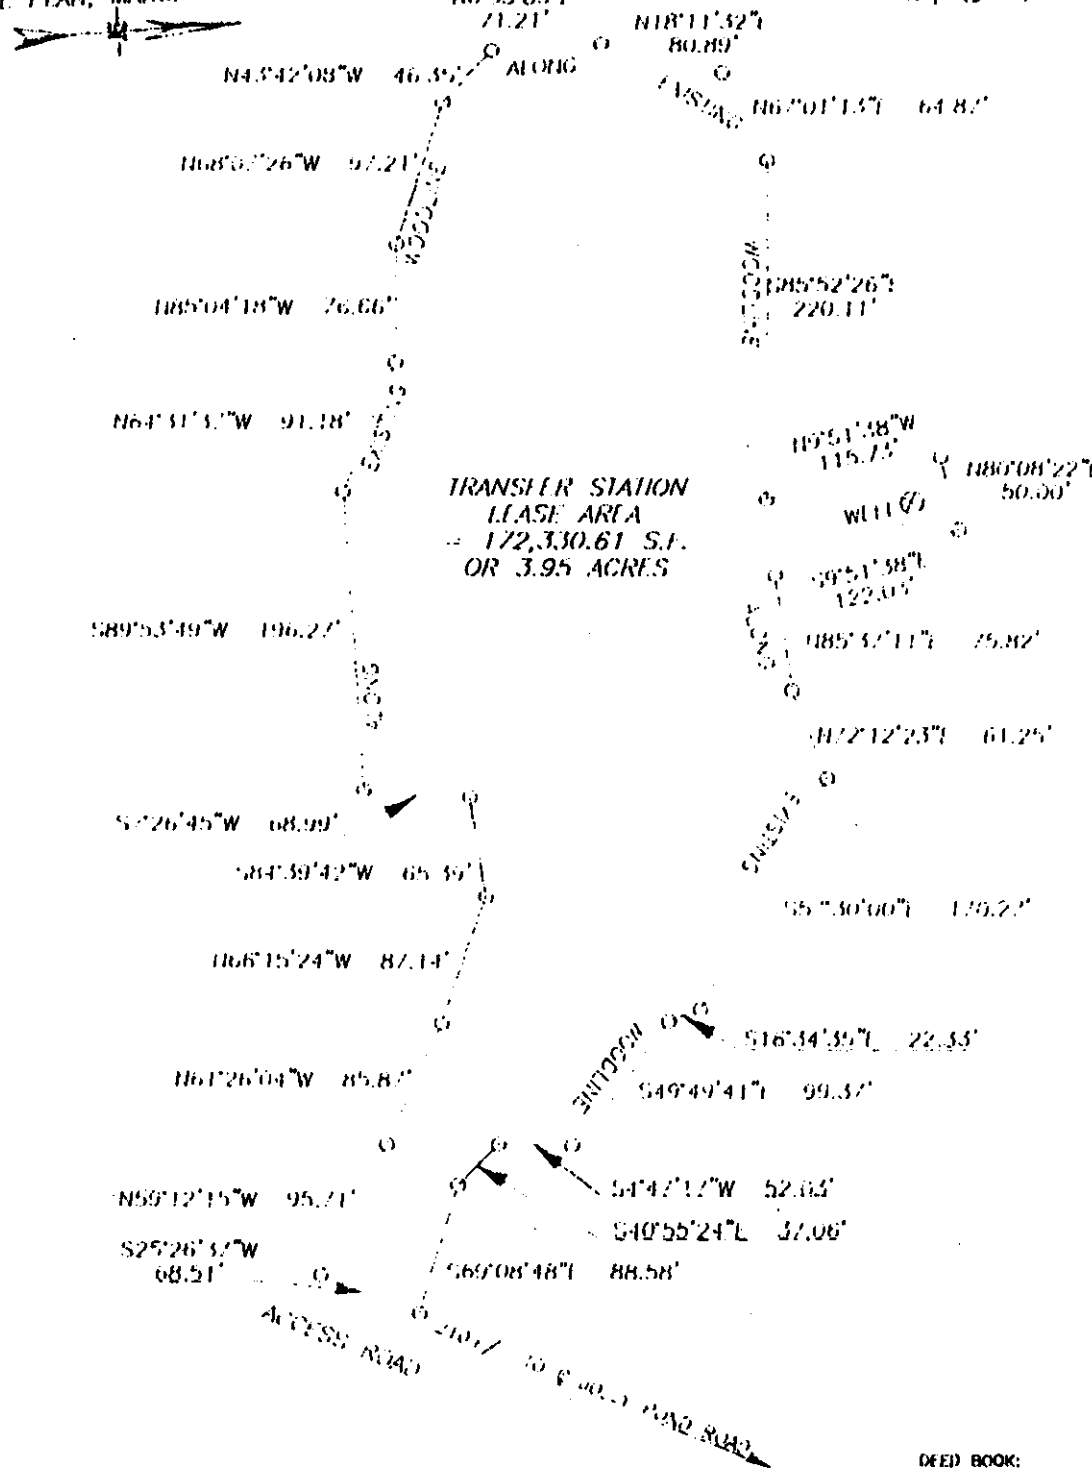 71.21'
N18°11'32"E
80.89'
N43°42'08"W 46.35'
ALONG
EXISTING
N67°01'13"E 64.87'
N68°07'26"W 97.21'
WOODLINE
WOODLINE
N85°52'26"E
220.11'
N85°04'18"W 76.66'
N64°31'37"W 91.18'
EXISTING
N9°51'38"W
115.73'
N80°08'22"E
50.00'
WELL
TRANSFER STATION
LEASE AREA
= 172,330.61 S.F.
OR 3.95 ACRES
S9°51'38"E
122.05'
S89°53'49"W 196.27'
ALONG
N85°37'11"E 75.82'
ALONG
N72°12'23"E 61.25'
S7°26'45"W 68.99'
EXISTING
S84°39'42"W 65.39'
S57°30'00"E 170.27'
N66°15'24"W 87.14'
WOODLINE
S16°34'35"E 22.33'
N61°26'04"W 85.87'
S49°49'41"E 99.37'
N59°12'15"W 95.71'
S4°47'17"W 52.03'
S40°55'24"E 37.06'
S25°26'37"W
68.51'
S69°08'48"E 88.58'
ACCESS ROAD
POND ROAD
DEED BOOK: